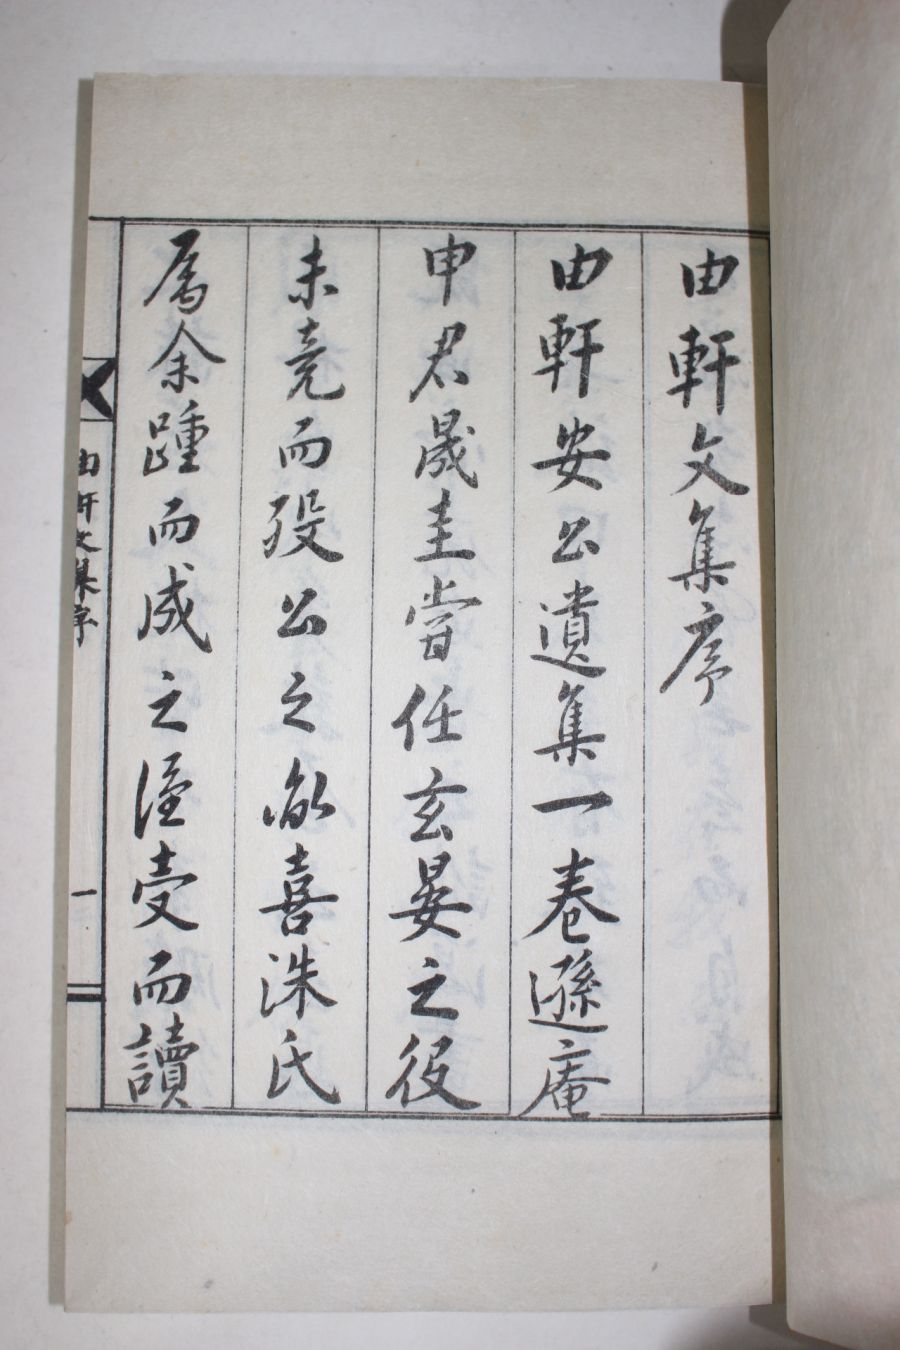 由軒文集序
由軒安公遺集一卷遯庵
申君晟圭嘗任玄晏之役
未竟而歿公之胤喜洙氏
属余踵而成之謹受而讀
由軒文集序
一